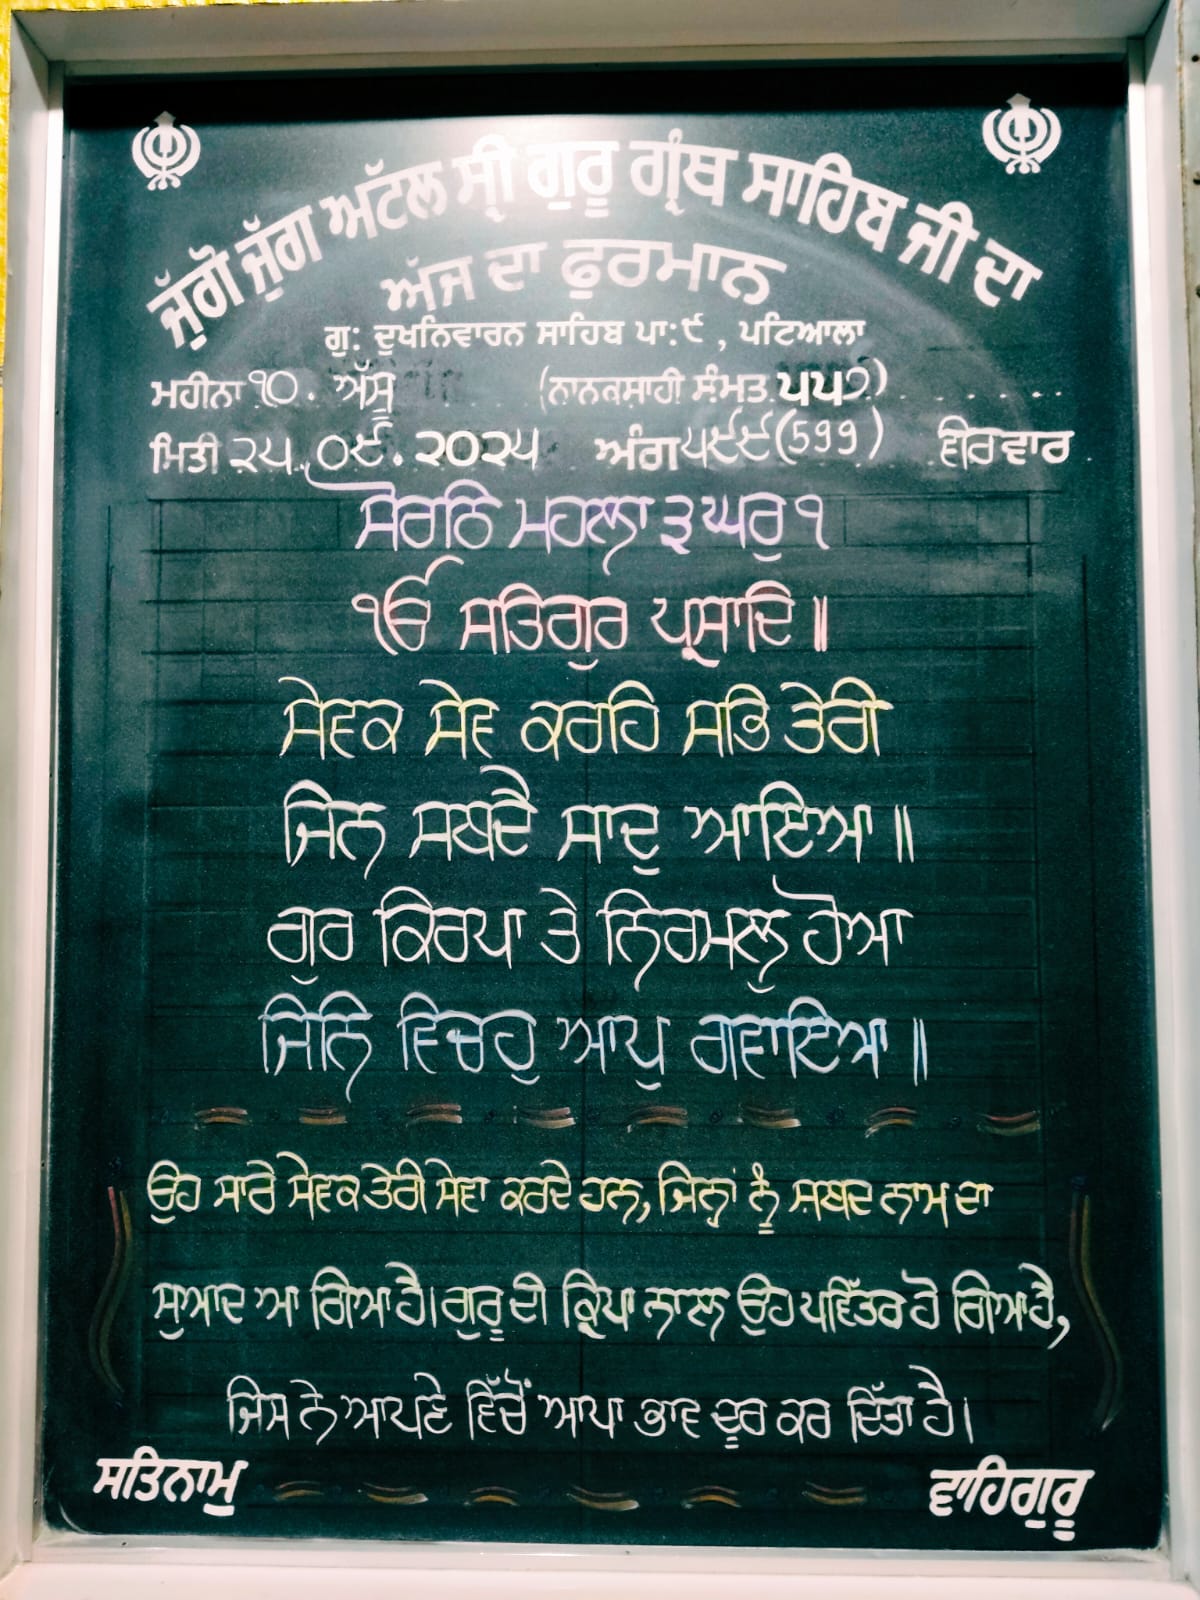 ਜੁੱਗੋ ਜੁੱਗ ਅਟੱਲ ਸ੍ਰੀ ਗੁਰੂ ਗ੍ਰੰਥ ਸਾਹਿਬ ਜੀ ਦਾ
ਅੱਜ ਦਾ ਫੁਰਮਾਨ
ਗੁ: ਦੁਖਨਿਵਾਰਨ ਸਾਹਿਬ ਪਾ:੯ , ਪਟਿਆਲਾ
ਮਹੀਨਾ ੧੦. ਅੱਸੂ (ਨਾਨਕਸ਼ਾਹੀ ਸੰਮਤ ੫੫੭)
ਮਿਤੀ ੨੫.੦੯.੨੦੨੫ ਅੰਗ ੫੯੯ (599) ਵੀਰਵਾਰ
ਸੋਰਠਿ ਮਹਲਾ ੩ ਘਰੁ ੧
ੴ ਸਤਿਗੁਰ ਪ੍ਰਸਾਦਿ ॥
ਸੇਵਕ ਸੇਵ ਕਰਹਿ ਸਭਿ ਤੇਰੀ
ਜਿਨ ਸਬਦੈ ਸਾਦੁ ਆਇਆ ॥
ਗੁਰ ਕਿਰਪਾ ਤੇ ਨਿਰਮਲੁ ਹੋਆ
ਜਿਨਿ ਵਿਚਹੁ ਆਪੁ ਗਵਾਇਆ ॥
ਉਹ ਸਾਰੇ ਸੇਵਕ ਤੇਰੀ ਸੇਵਾ ਕਰਦੇ ਹਨ, ਜਿਨ੍ਹਾਂ ਨੂੰ ਸ਼ਬਦ ਨਾਮ ਦਾ
ਸੁਆਦ ਆ ਗਿਆ ਹੈ। ਗੁਰੂ ਦੀ ਕ੍ਰਿਪਾ ਨਾਲ ਉਹ ਪਵਿੱਤਰ ਹੋ ਗਿਆ ਹੈ,
ਜਿਸ ਨੇ ਆਪਣੇ ਵਿੱਚੋਂ ਆਪਾ ਭਾਵ ਦੂਰ ਕਰ ਦਿੱਤਾ ਹੈ।
ਸਤਿਨਾਮੁ ਵਾਹਿਗੁਰੂ